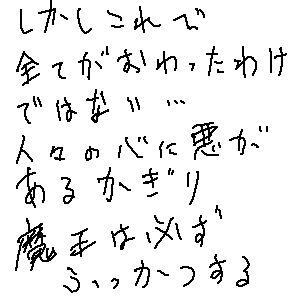 しかしこれで
全てがおわったわけ
ではない…
人々の心に悪が
あるかぎり
魔王は必ず
ふっかつする